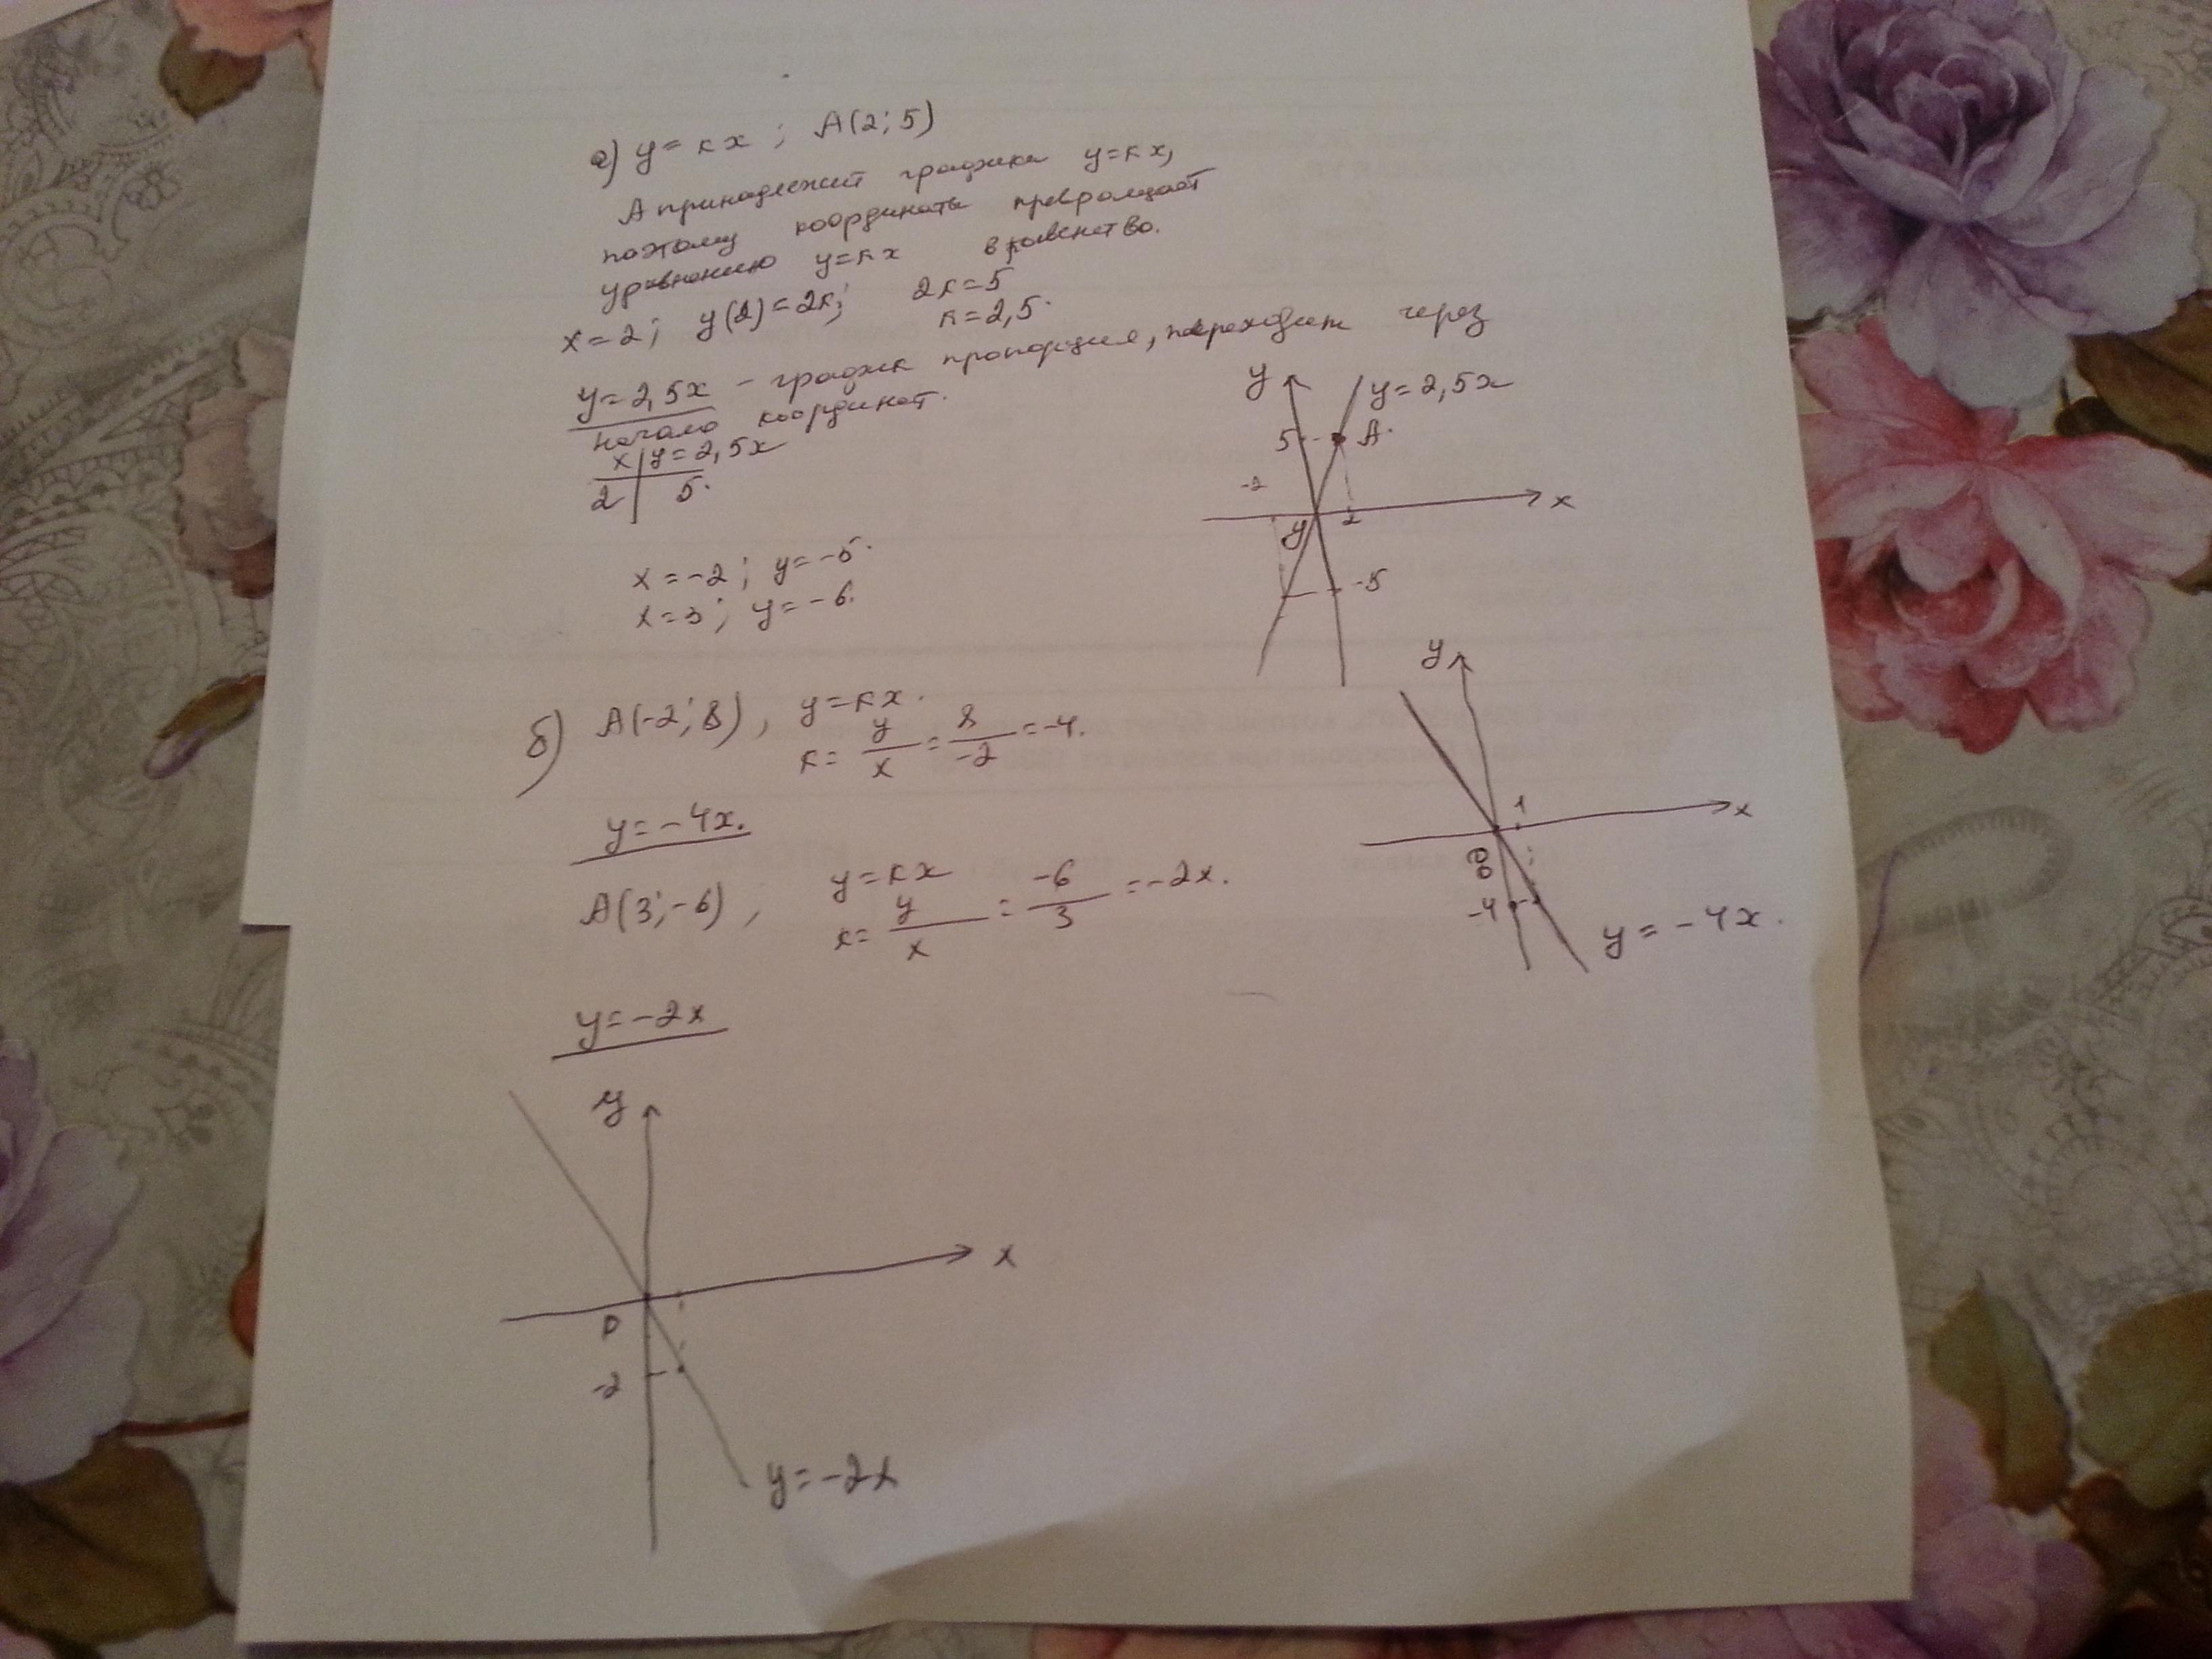 а) y = кx ; А(2; 5)
А принадлежит графика y=кx,
поэтому координаты превращает
уравнению y=кx в равенство.
x=2; y(2)=2к; 2к=5
к=2,5.
y=2,5x – график пропорция, переходит через
начало координат.
x | y=2,5x
2 | 5.
x=-2; y=-5.
x=3; y=-6.
y
y=2,5x
5
А.
-2
2
x
y
-5
б) А(-2; 8), y=кx.
к= y/x = 8/-2 = -4.
y=-4x.
y
1
x
0
-4
y = -4x.
А(3; -6), y=кx
к= y/x = -6/3 = -2x.
y=-2x
y
x
0
-2
y=-2x